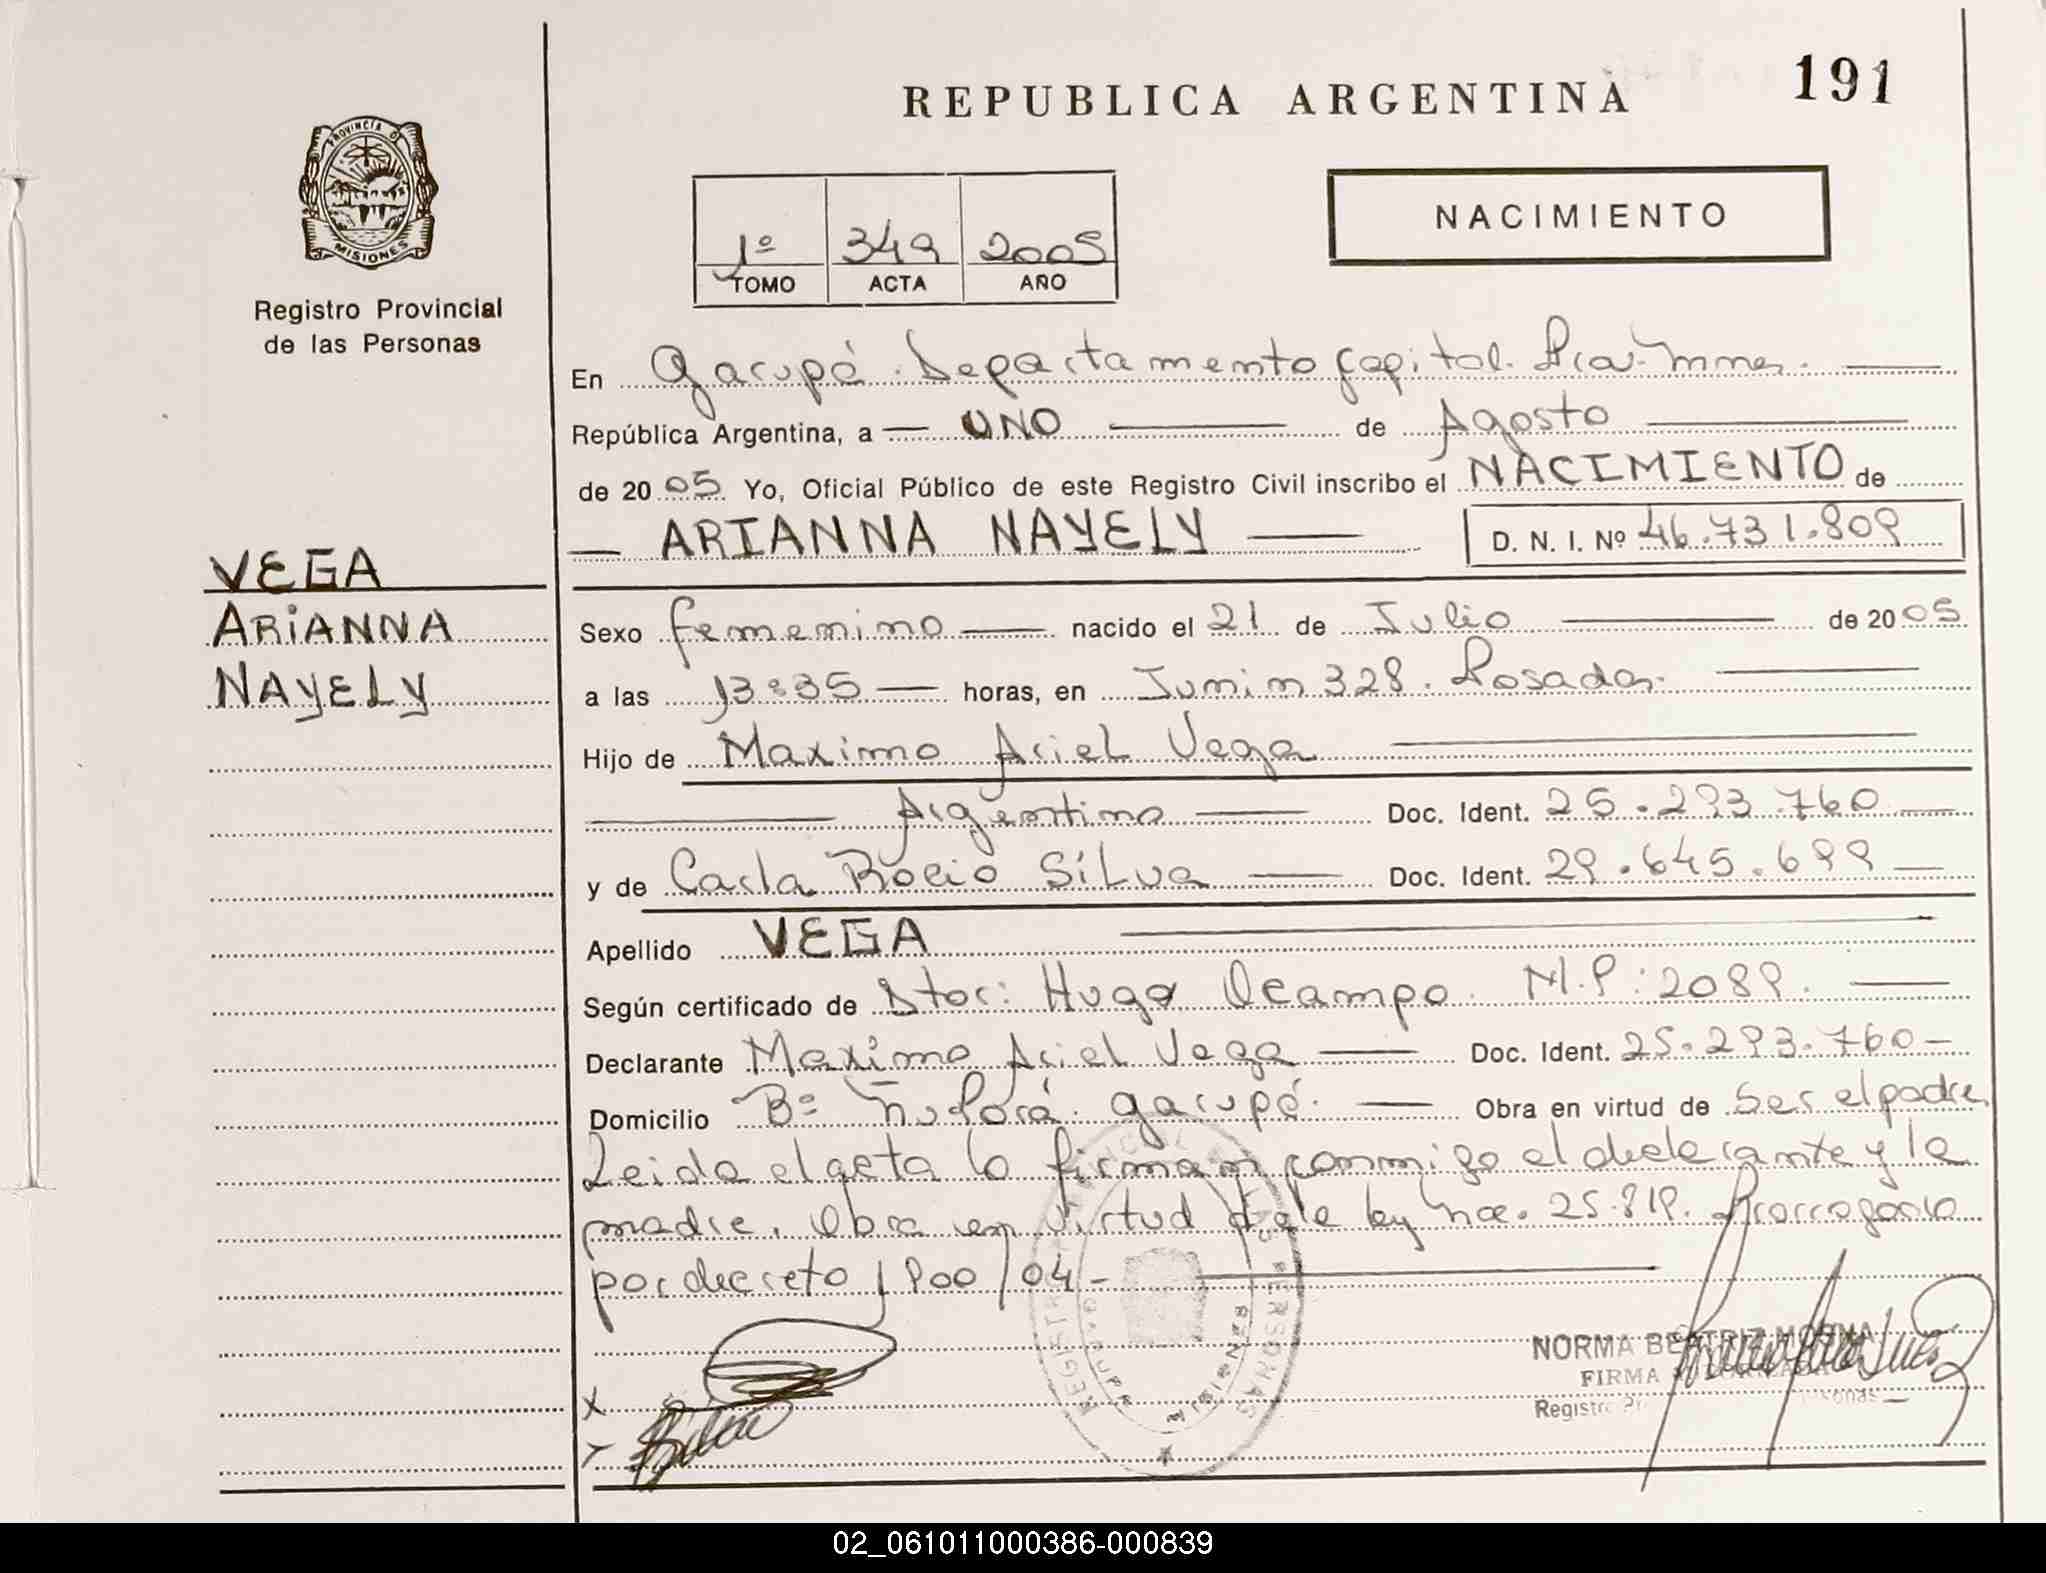 191
REPUBLICA ARGENTINA
PROVINCIA D
MISIONES
Registro Provincial
de las Personas
1º 349 2005
TOMO ACTA AÑO
NACIMIENTO
En Garupá. Departamento Capital. Pcia. Mnes.
República Argentina, a UNO de Agosto
de 2005 Yo, Oficial Público de este Registro Civil inscribo el NACIMIENTO de
ARIANNA NAYELY D. N. I. Nº 46.731.809
VEGA
ARIANNA
NAYELY
Sexo femenino nacido el 21 de Julio de 2005
a las 13:35 horas, en Junin 328. Posadas.
Hijo de Maximo Ariel Vega
Argentino Doc. Ident. 25.293.760
y de Carla Rocio Silva Doc. Ident. 29.645.699
Apellido VEGA
Según certificado de Dtor: Hugo Ocampo. M.P: 2089.
Declarante Maximo Ariel Vega Doc. Ident. 25.293.760
Domicilio Bº Ñu Porá. Garupá. Obra en virtud de Ser el padre.
Leida el acta la firman conmigo el declarante y la
madre. Obra en virtud de la ley nac. 25.819. Prorrogada
por decreto 1900/04-
NORMA BEATRIZ
FIRMA
Registro
X
Silva
02_061011000386-000839